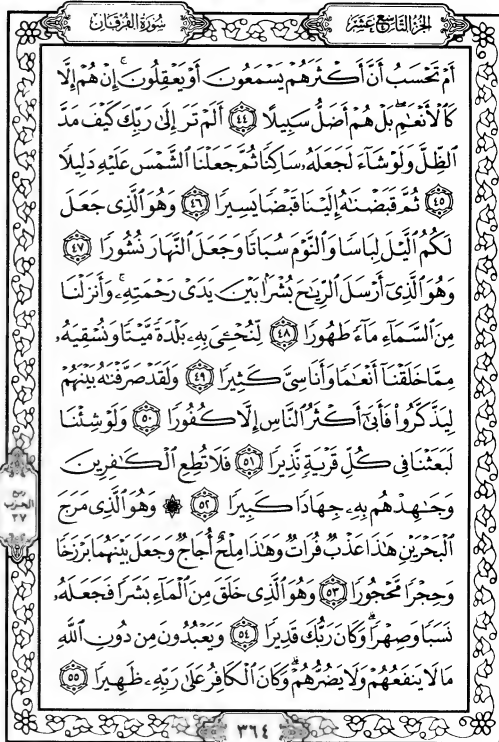 الجزء التاسع عشر
سورة الفرقان
أَمْ تَحْسَبُ أَنَّ أَكْثَرَهُمْ يَسْمَعُونَ أَوْ يَعْقِلُونَ ۚ إِنْ هُمْ إِلَّا
كَالْأَنْعَٰمِ ۖ بَلْ هُمْ أَضَلُّ سَبِيلًا ٤٤ أَلَمْ تَرَ إِلَىٰ رَبِّكَ كَيْفَ مَدَّ
الظِّلَّ وَلَوْ شَاءَ لَجَعَلَهُۥ سَاكِنًا ثُمَّ جَعَلْنَا الشَّمْسَ عَلَيْهِ دَلِيلًا
٤٥ ثُمَّ قَبَضْنَٰهُ إِلَيْنَا قَبْضًا يَسِيرًا ٤٦ وَهُوَ الَّذِى جَعَلَ
لَكُمُ الَّيْلَ لِبَاسًا وَالنَّوْمَ سُبَاتًا وَجَعَلَ النَّهَارَ نُشُورًا ٤٧
وَهُوَ الَّذِىٓ أَرْسَلَ الرِّيَٰحَ بُشْرًۢا بَيْنَ يَدَىْ رَحْمَتِهِۦ ۚ وَأَنزَلْنَا
مِنَ السَّمَآءِ مَآءً طَهُورًا ٤٨ لِّنُحْـِۧىَ بِهِۦ بَلْدَةً مَّيْتًا وَنُسْقِيَهُۥ
مِمَّا خَلَقْنَآ أَنْعَٰمًا وَأَنَاسِىَّ كَثِيرًا ٤٩ وَلَقَدْ صَرَّفْنَٰهُ بَيْنَهُمْ
لِيَذَّكَّرُوا۟ فَأَبَىٰٓ أَكْثَرُ النَّاسِ إِلَّا كُفُورًا ٥٠ وَلَوْ شِئْنَا
لَبَعَثْنَا فِى كُلِّ قَرْيَةٍ نَّذِيرًا ٥١ فَلَا تُطِعِ الْكَٰفِرِينَ
وَجَٰهِدْهُم بِهِۦ جِهَادًا كَبِيرًا ٥٢ ۞ وَهُوَ الَّذِى مَرَجَ
الْبَحْرَيْنِ هَٰذَا عَذْبٌ فُرَاتٌ وَهَٰذَا مِلْحٌ أُجَاجٌ وَجَعَلَ بَيْنَهُمَا بَرْزَخًا
وَحِجْرًا مَّحْجُورًا ٥٣ وَهُوَ الَّذِى خَلَقَ مِنَ الْمَآءِ بَشَرًا فَجَعَلَهُۥ
نَسَبًا وَصِهْرًا ۗ وَكَانَ رَبُّكَ قَدِيرًا ٥٤ وَيَعْبُدُونَ مِن دُونِ اللَّهِ
مَا لَا يَنفَعُهُمْ وَلَا يَضُرُّهُمْ ۗ وَكَانَ الْكَافِرُ عَلَىٰ رَبِّهِۦ ظَهِيرًا ٥٥
ربع
الحزب
٣٧
٣٦٤